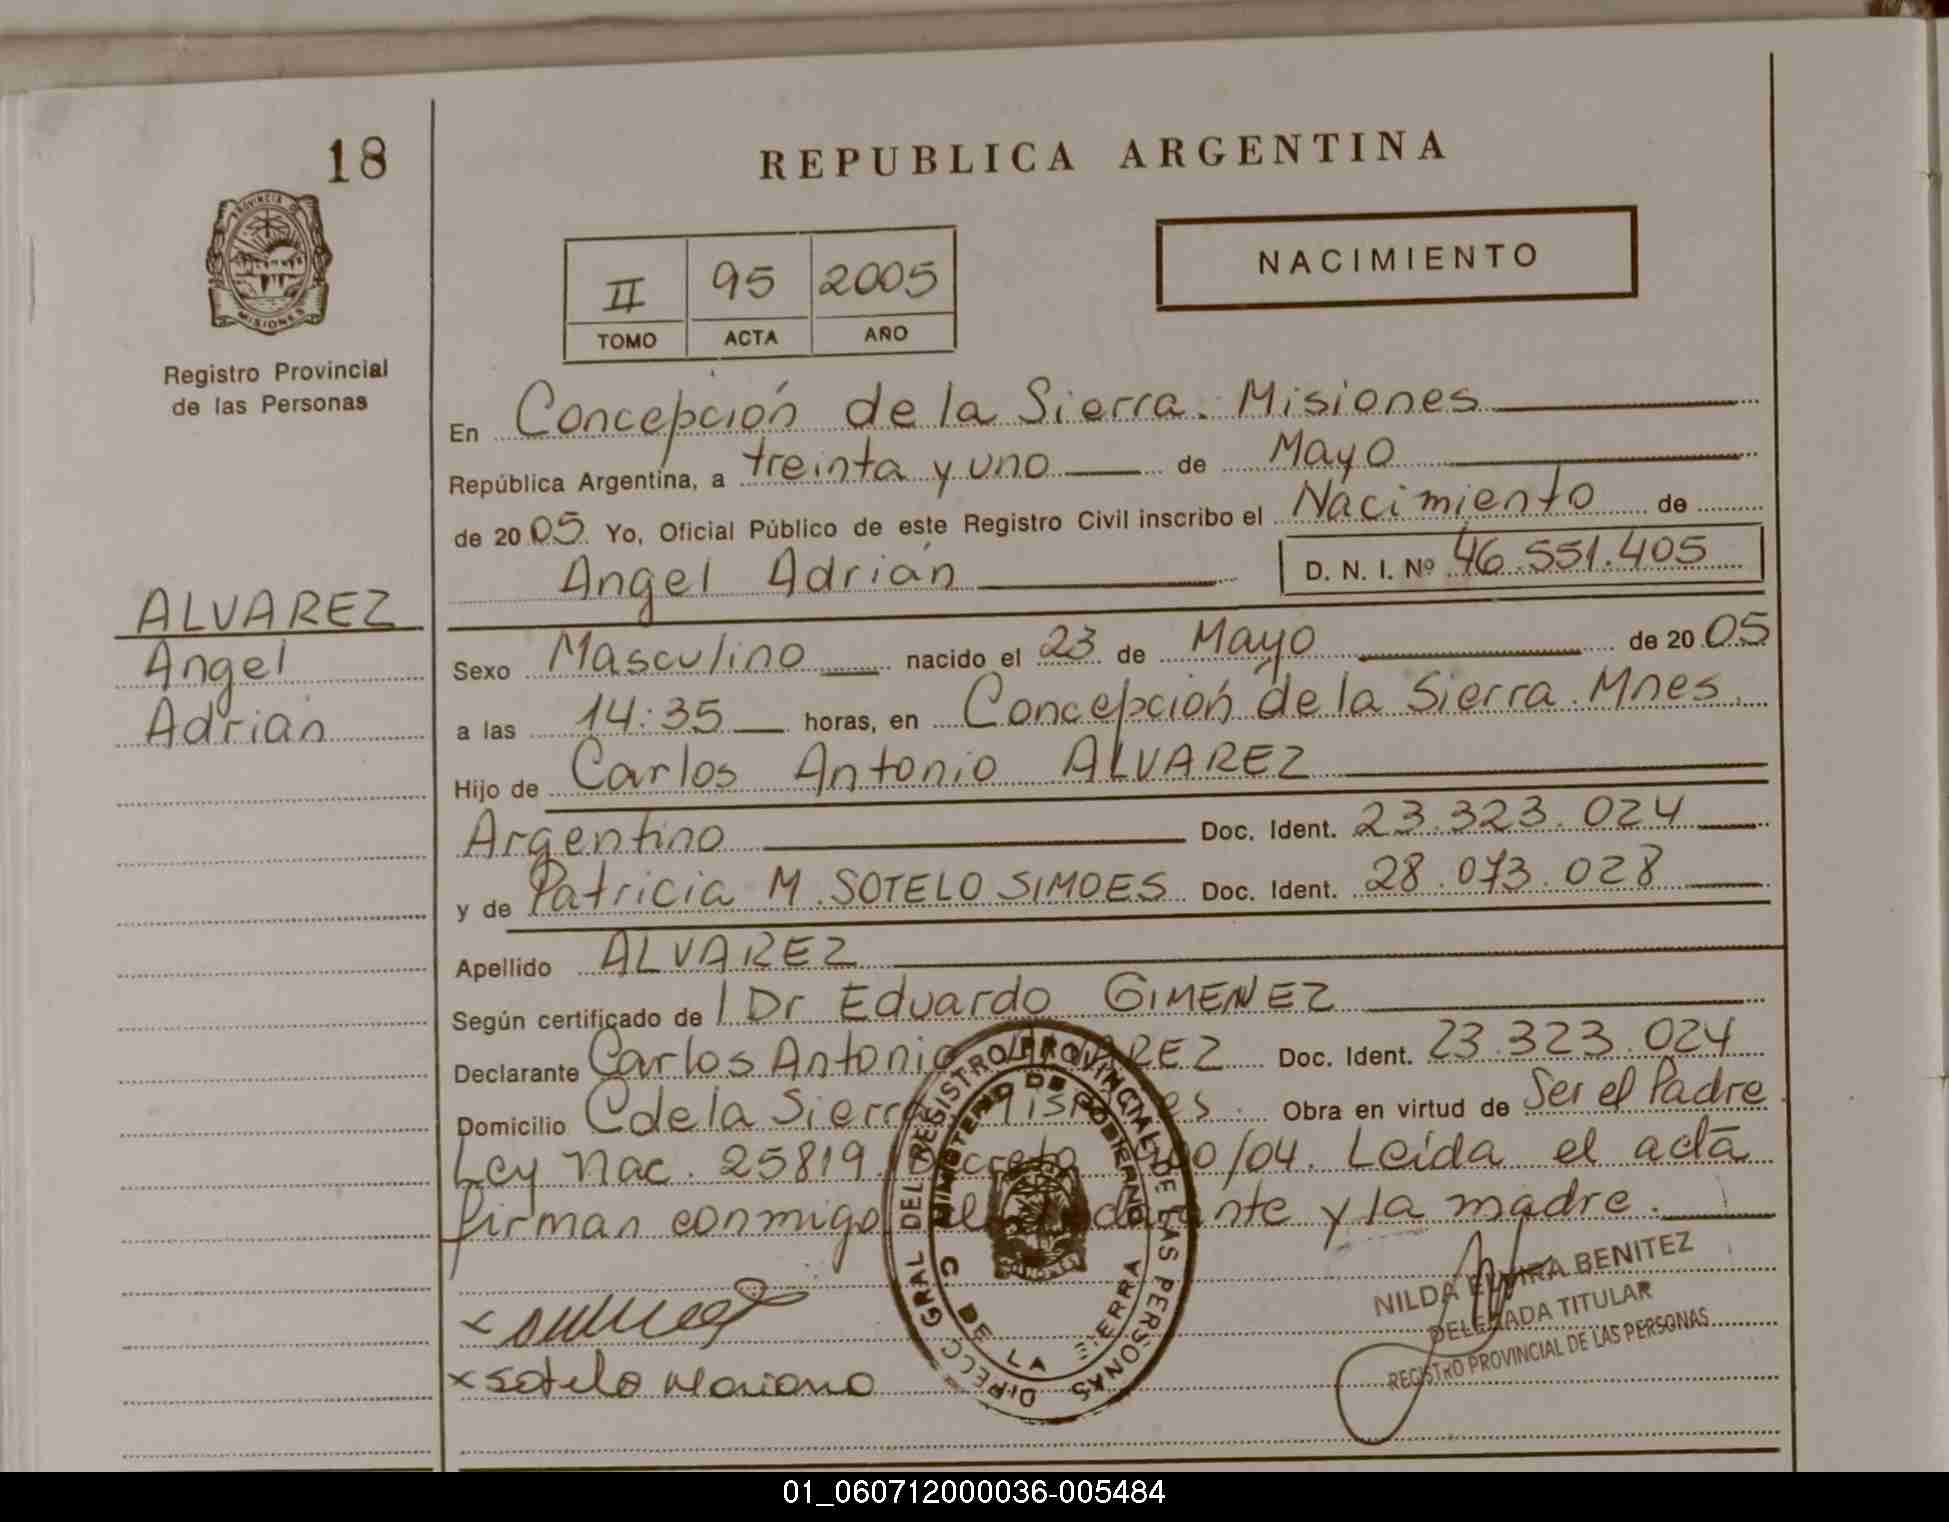 18
PROVINCIA DE
MISIONES
Registro Provincial
de las Personas
ALVAREZ
Angel
Adrián
REPUBLICA ARGENTINA
II 95 2005
TOMO ACTA AÑO
NACIMIENTO
En Concepción de la Sierra. Misiones
República Argentina, a treinta y uno de Mayo
de 2005 Yo, Oficial Público de este Registro Civil inscribo el Nacimiento de
Angel Adrián D. N. I. Nº 46.551.405
Sexo Masculino nacido el 23 de Mayo de 2005
a las 14:35 horas, en Concepción de la Sierra. Mnes.
Hijo de Carlos Antonio ALVAREZ
Argentino Doc. Ident. 23.323.024
y de Patricia M. SOTELO SIMOES Doc. Ident. 28.073.028
Apellido ALVAREZ
Según certificado de Dr Eduardo GIMENEZ
Declarante Carlos Antonio ALVAREZ Doc. Ident. 23.323.024
Domicilio C de la Sierra Misiones. Obra en virtud de Ser el Padre.
Ley Nac. 25819. Decreto /04. Leída el acta
firman conmigo el declarante y la madre.
GRAL DEL REGISTRO PROVINCIAL DE LAS PERSONAS
MINISTERIO DE GOBIERNO
C DE LA SIERRA
NILDA ELVIRA BENITEZ
DELEGADA TITULAR
REGISTRO PROVINCIAL DE LAS PERSONAS
x Sotelo Mariana
01_060712000036-005484